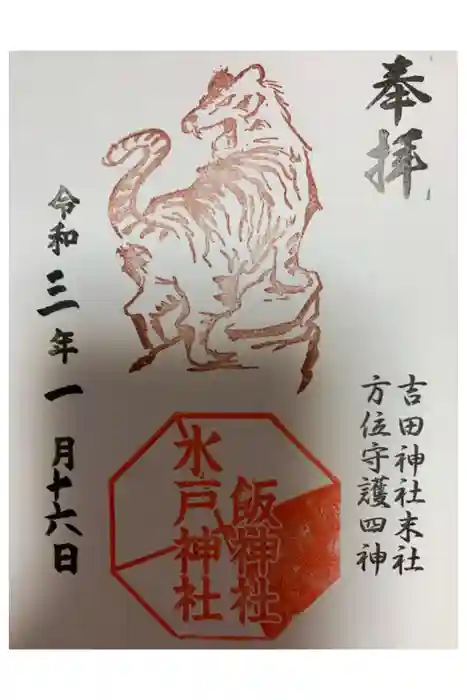 奉拝
吉田神社末社
方位守護四神
飯神社
水戸神社
令和三年一月十六日